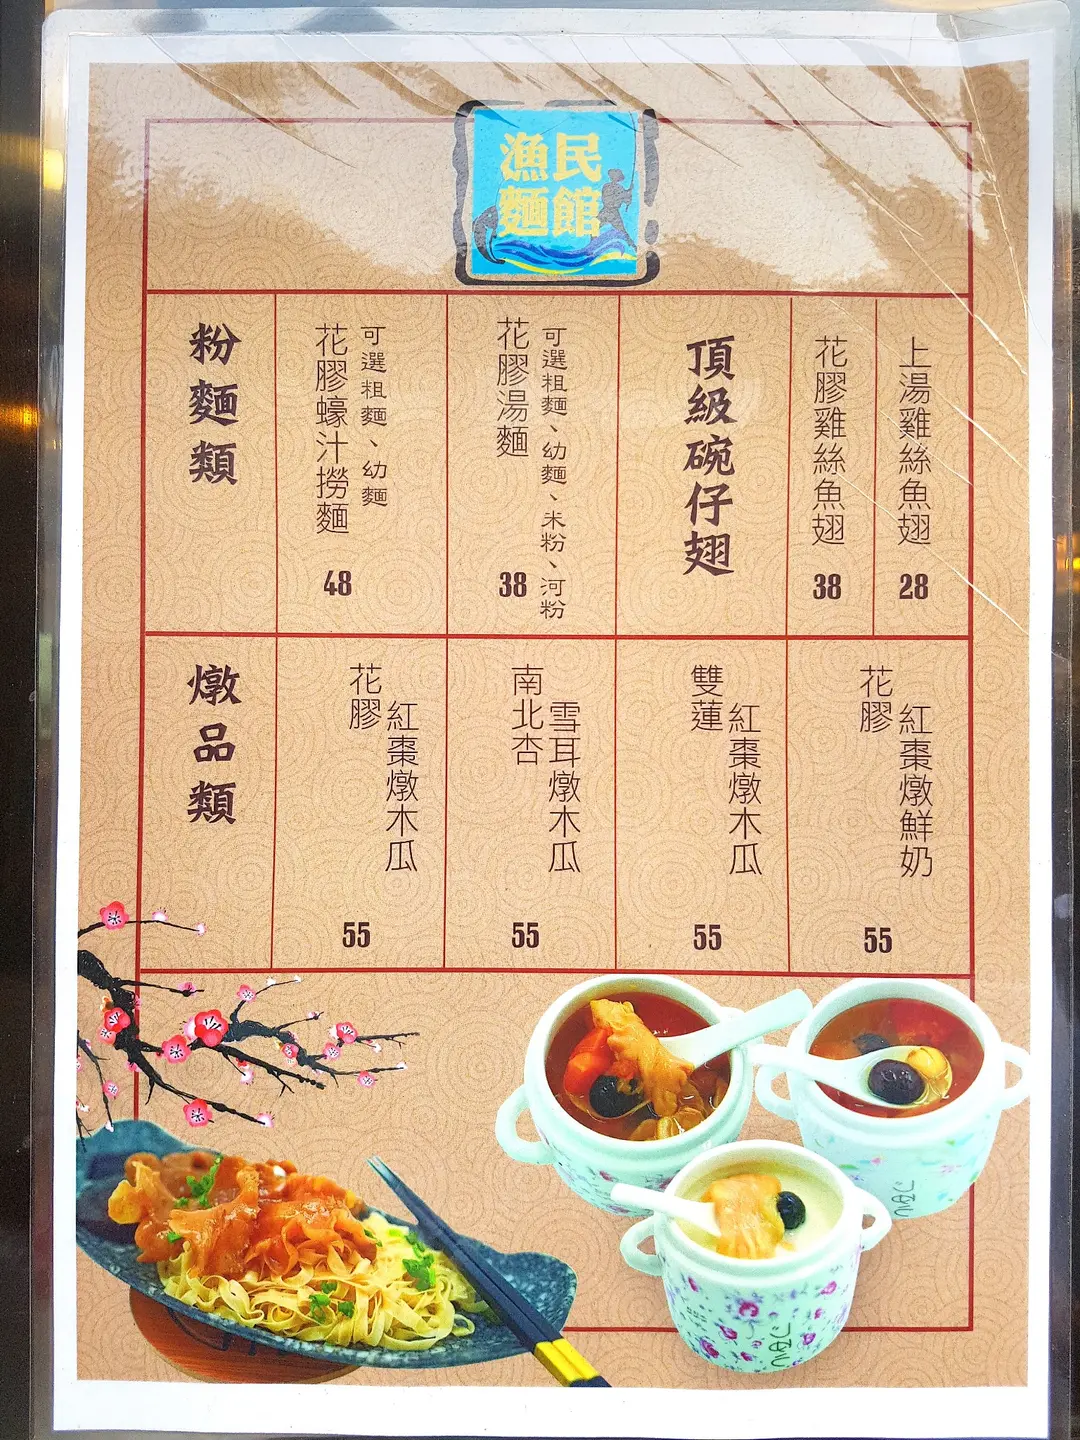 漁民
麵館
粉麵類
花膠蠔汁撈麵
可選粗麵、幼麵
48
花膠湯麵
可選粗麵、幼麵、米粉、河粉
38
頂級碗仔翅
花膠雞絲魚翅
38
上湯雞絲魚翅
28
燉品類
花膠
紅棗燉木瓜
55
南北杏
雪耳燉木瓜
55
雙蓮
紅棗燉木瓜
55
花膠
紅棗燉鮮奶
55